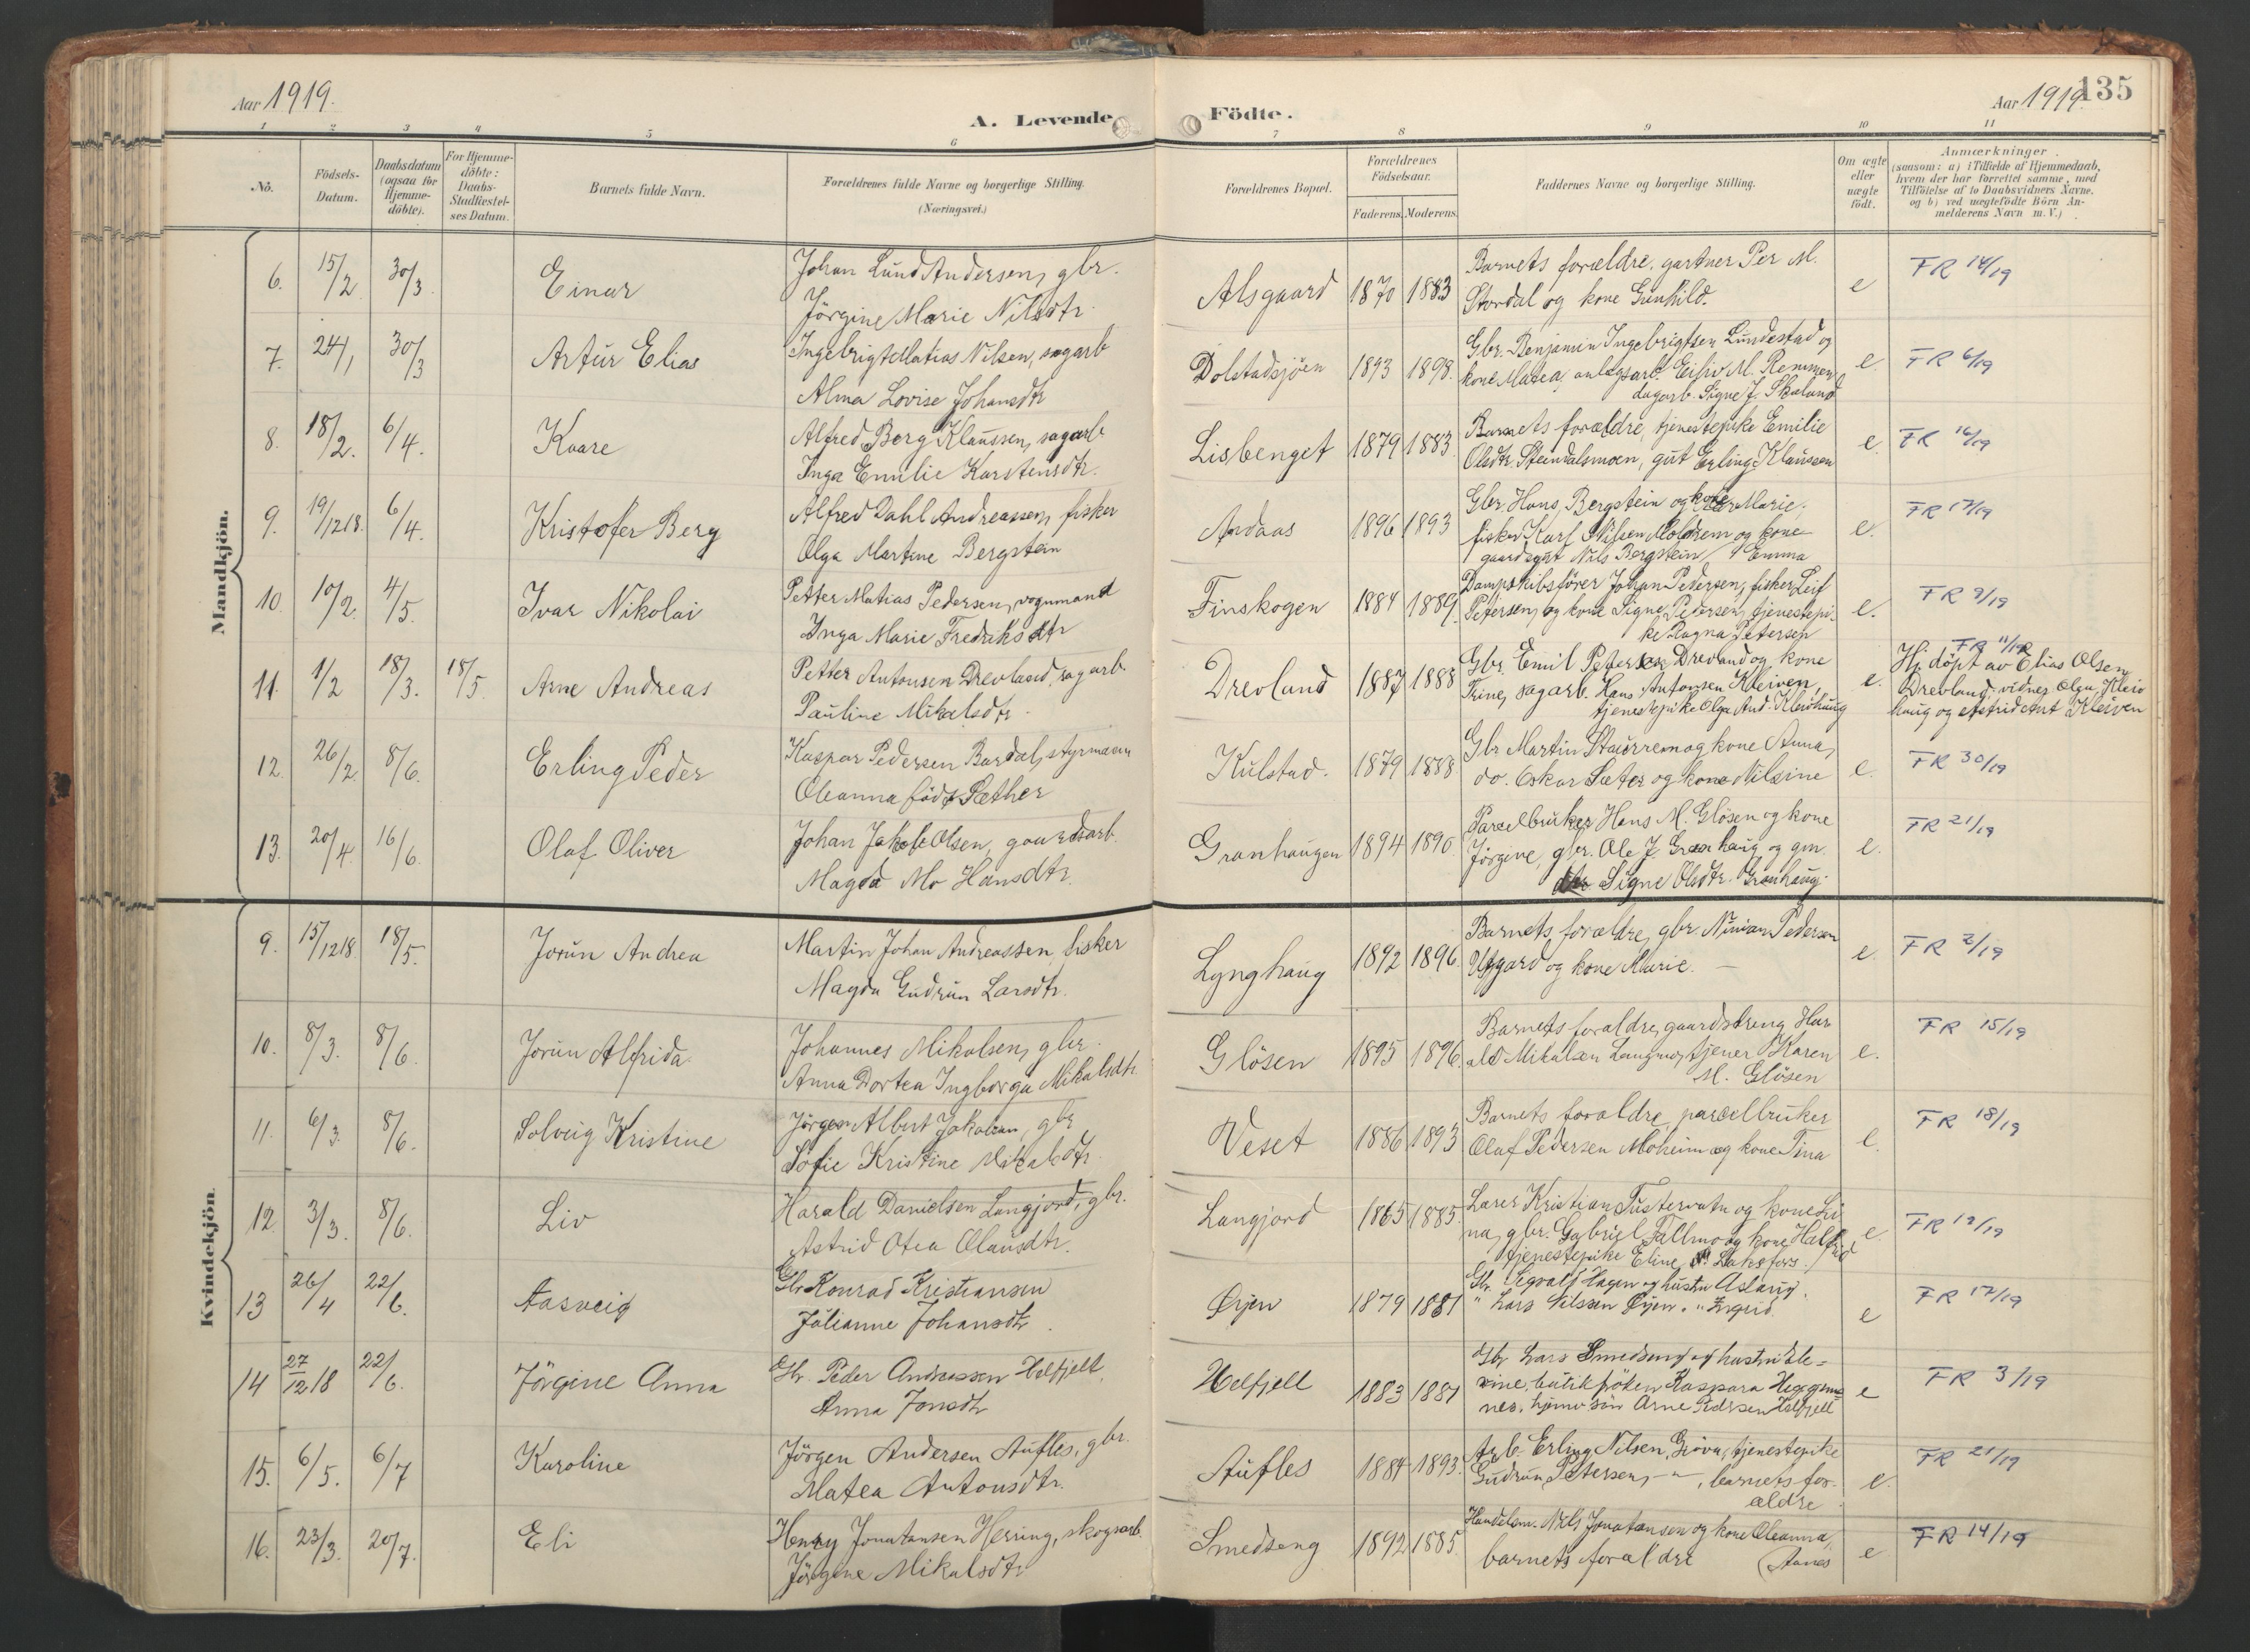 Aar 1919.
A. Levende
Födte.
Aar 1919.
135
1 2 3 4 5 6 7 8 9 10 11
No.
Födsels-Datum.
Daabsdatum (ogsaa for Hjemme-döbte).
For Hjemme-döbte: Daabs-Stadfæstel-ses Datum.
Barnets fulde Navn.
Forældrenes fulde Navne og borgerlige Stilling.
(Næringsvei.)
Forældrenes Bopæl.
Forældrenes Födselsaar.
Faderens. Moderens.
Faddernes Navne og borgerlige Stilling.
Om ægte eller uægte födt.
Anmærkninger
(saasom: a) i Tilfælde af Hjemmedaab,
hvem der har forrettet samme, med
Tilföielse af to Daabsvidners Navne.
og b) ved uægtefödte Börn An-
melderens Navn m. V.)
Mandkjön.
6. 15/2 30/3 Einar
Johan Lund Andersen, gbr.
Jörgine Marie Nilsdtr.
Alsgaard 1870 1883
Barnets forældre, gartner Per M.
Stordal og kone Gunhild.
e FR 14/19
7. 24/1 30/3 Artur Elias
Ingebrigt Matias Nilsen, sagarb
Alma Lovise Johansdtr
Dolstadsjöen 1893 1898.
Gbr. Benjamin Ingebrigtsen Lundestad og
kone Matea, anlegsarb. M. Remmen
dagarb. Signe J. Skaland
e. FR 6/19
8. 18/2. 6/4. Kaare
Alfred Berg Klaussen, sagarb
Inga Emilie Karstensdtr.
Lisbenget 1879 1883.
Barnets forældre, tjenestepike Emilie
Olsdtr. Steindalsmoen, gut Erling Klaussen
e. FR 16/19
9. 19/12 18. 6/4. Kristofer Berg
Alfred Dahl Andreassen, fisker
Olga Martine Bergstein
Andaas 1896 1893
Gbr. Hans Bergstein og kone Marie,
fisker Karl Nilsen Moldrem og kone
gaardsgut Nils Bergstein / Emma
e. FR 17/19
10. 10/2. 4/5. Ivar Nikolai
Petter Matias Pedersen, vognmand
Inga Marie Fredriksdtr
Finskogen 1884 1889.
Dampskibsförer Johan Pedersen, fisker Leif
Petersen, og kone Signe Pedersen, tjenestepi-
ke Ragna Petersen
e. FR 9/19
11. 1/2 18/3. 18/5. Arne Andreas
Petter Antonsen Drevland, sagarb.
Pauline Mikalsdtr.
Drevland 1887 1888
Gbr. Emil Petersen Drevland og kone
Trine, sagarb. Hans Antonsen Kleiven,
tjenestepike Olga And. Kleivhaug
e. FR 11/19
Hj. döpt av Elias Olsen
Drevland, vidner Olga Kleiv
haug og Astrid Ant Kleiven
12. 26/2. 8/6. Erling Peder
Kaspar Pedersen Bardal, styrmann
Oleanna född Sæther
Kulstad. 1879 1888
Gbr Martin Staurrem og kone Anna,
do. Oskar Sæter og kone Nilsine
e. FR 30/19
13. 20/4. 16/6. Olaf Oliver
Johan Jakob Olsen, gaardsarb.
Magda Mo Hansdtr.
Granhaugen 1894 1890.
Parcelbruker Hans M. Glösen og kone
Jörgine, gbr. Ole J. Granhaug og gm.
dtr Signe Olsdtr. Granhaug.
e. FR 21/19
Kvindekjön.
9. 15/12 18. 18/5. Jorun Andrea
Martin Johan Andreassen, fisker
Magda Gudrun Larsdtr.
Lynghaug 1892 1896.
Barnets forældre, gbr. Ninian Pedersen
og kone Marie. —
e. FR 2/19
10. 8/3. 8/6. Jorun Alfrida
Johannes Mikalsen, gbr.
Anna Dortea Ingborga Mikalsdtr.
Glösen 1895 1896.
Barnets foraldre, gaardsdreng Har
ald Mikalsen Langmo, tjener Karen
M. Glösen
e. FR 15/19
11. 6/3. 8/6. Solveig Kristine
Jörgen Albert Jakobsen, gbr
Sofie Kristine Mikalsdtr.
Veset 1886 1893
Barnets foraldre, parcelbruker
Olaf Pedersen Moheim og kone Tina
e. FR 18/19
12. 3/3. 8/6. Liv
Harald Danielsen Langjord, gbr.
Astrid Otea Olausdtr.
Langjord 1865 1885.
Lærer Kristian Tustervatn og kone Li
na, gbr. Gabriel Fallmo og kone Halfrid
tjenestepike Eline Laksfors.
e. FR 19/19
13 26/4 22/6. Aasveig
Gbr Konrad Kristiansen
Julianne Johansdtr.
Øyen 1879 1881
Gbr. Sigvald Hagen og hustru Aslaug.
" Lars Nilssen Øyen. " Ingrid.
e FR 17/19
14 27/12 18 22/6. Jörgine Anna
Gbr. Peder Andreassen Helfjell.
Anna Jonsdtr
Helfjell 1883 1881
Gbr Lars Smedseng og hustru Ele=
vine, butikfröken Kaspara Heggem=
nes, hjemv. sön Arne Pedersen Helfjell
e FR 3/19
15. 6/5. 6/7 Karoline
Jörgen Andersen Aufles, gbr.
Matea Antonsdtr.
Aufles 1884 1893.
Arb. Erling Nilsen, Grova, tjenestepike
Gudrun Petersen, -"-, barnets for-
ældre.
e. FR 21/19
16. 23/3. 20/7. Eli
Henry Jonatansen Herring, skogsarb.
Jörgine Mikalsdtr
Smedseng 1892 1885.
Handelsm. Nils Jonatansen og kone Oleanna,
barnets foraldre (Aanes
e FR 14/19